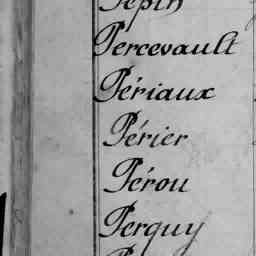 Pepin
Percevault
Périaux
Périer
Pérou
Perquy